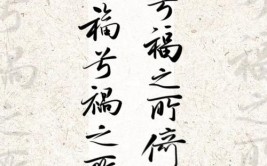 兮福之所倚
福兮禍之所